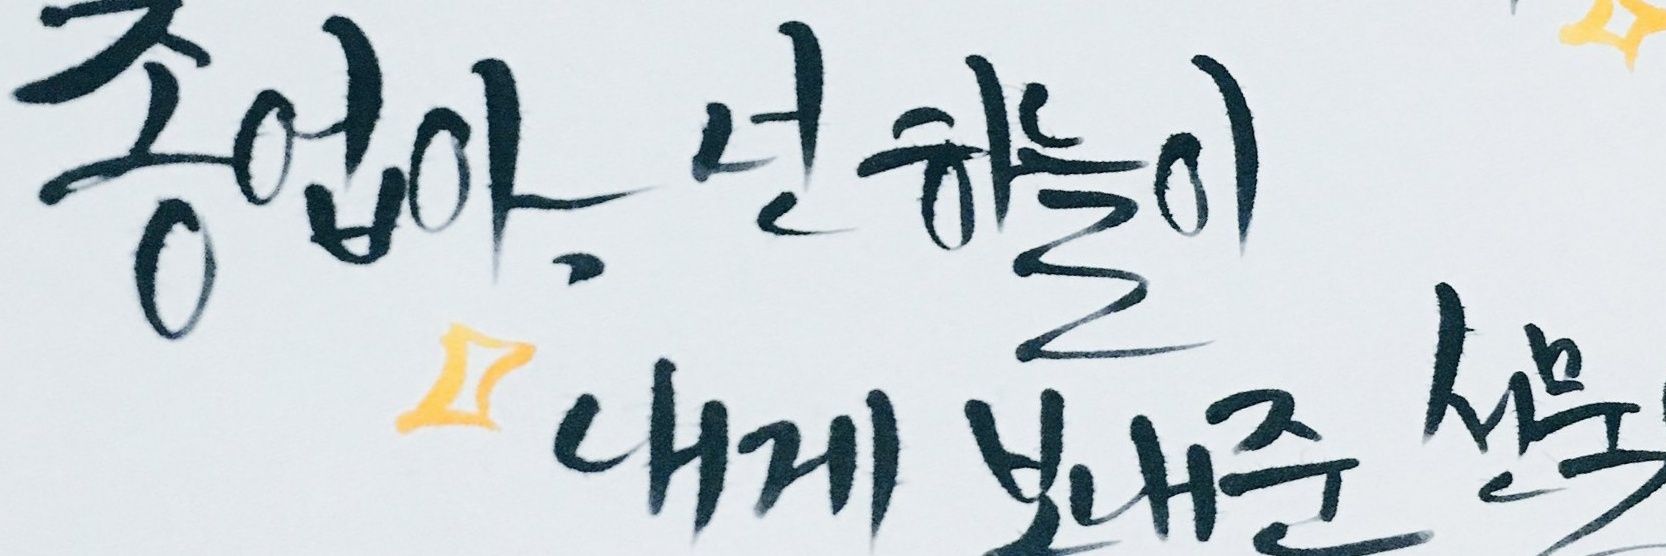 종업아, 넌 하늘이
내게 보내준 선물